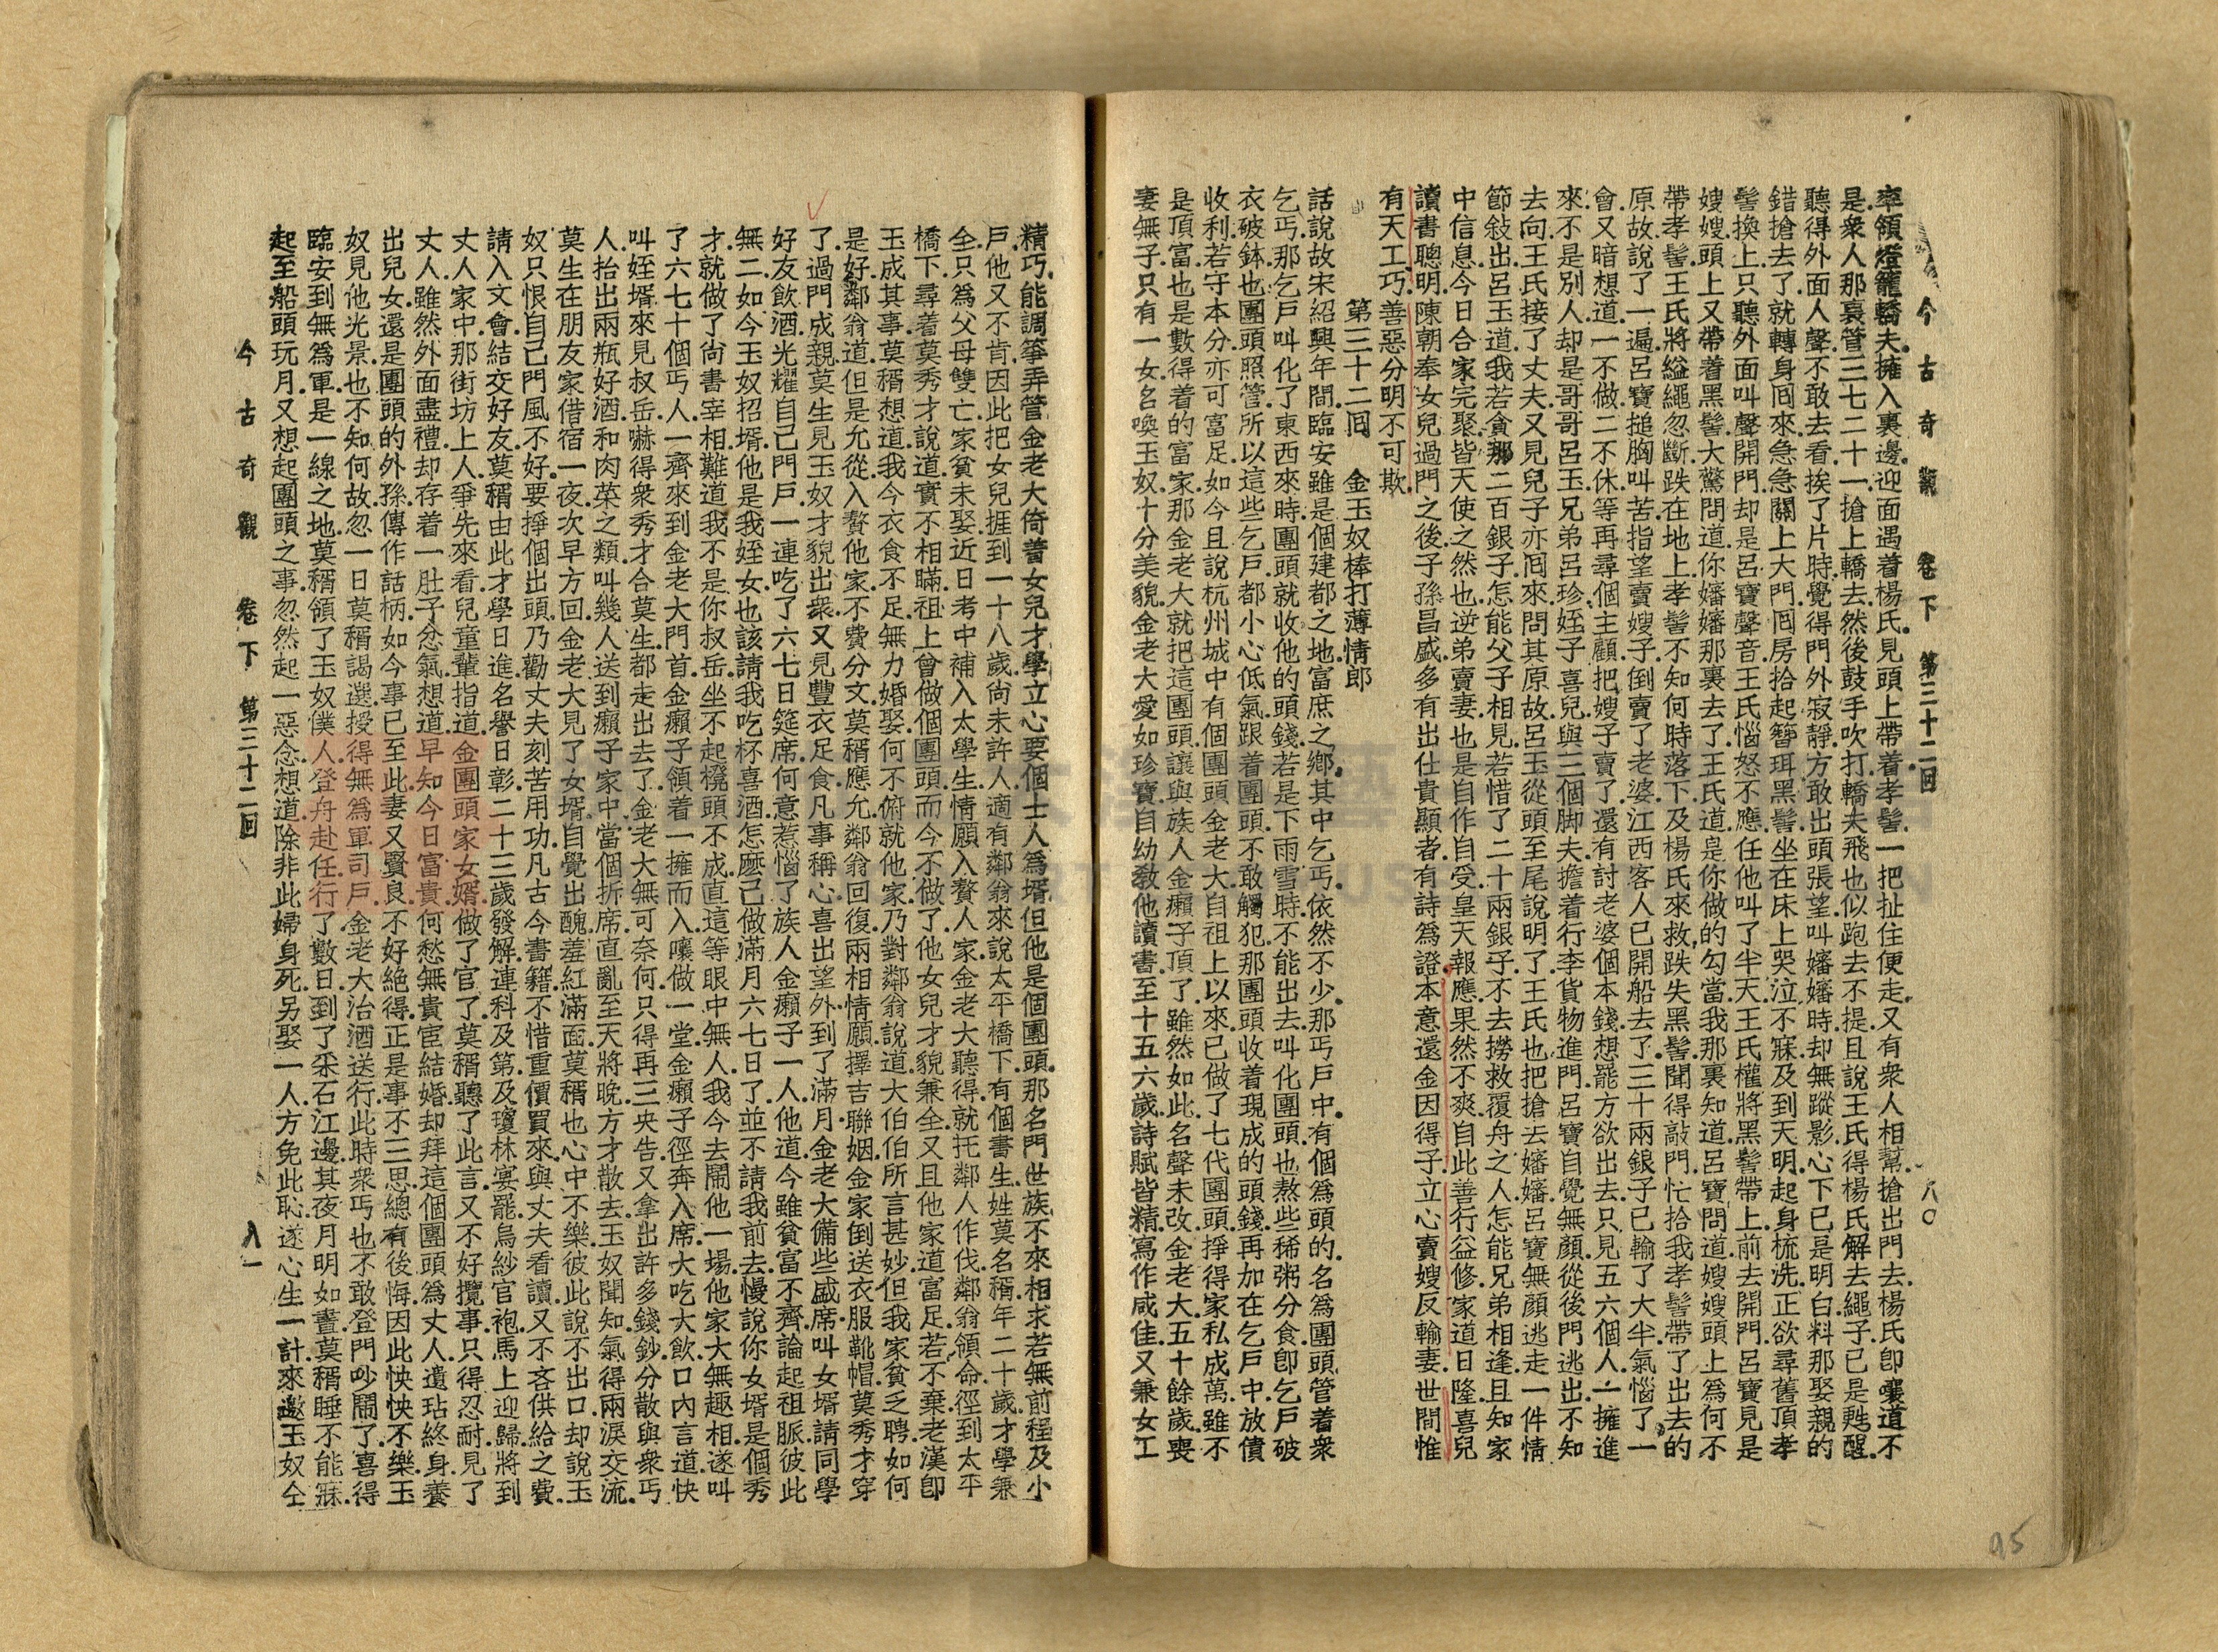 今古奇觀　卷下　第三十二回　八〇
率領燈籠轎夫.擁入裏邊.迎面遇着楊氏.見頭上帶着孝髻.一把扯住便走.又有衆人相幫.搶出門去.楊氏卽嚷道不
是.衆人那裏管三七二十一.搶上轎去.然後鼓手吹打.轎夫飛也似跑去不提.且說王氏得楊氏解去繩子.已是甦醒.
聽得外面人聲不敢去看.挨了片時.覺得門外寂靜.方敢出頭張望.叫嬸嬸時.却無蹤影.心下已是明白.料那娶親的
錯搶去了.就轉身囘來.急急關上大門.囘房拾起簪珥黑髻.坐在床上哭泣不寐.及到天明.起身梳洗.正欲尋舊頂孝
髻換上.只聽外面叫聲開門.却是呂寶聲音.王氏惱怒不應.任他叫了半天.王氏權將黑髻帶上.前去開門.呂寶見是
嫂嫂.頭上又帶着黑髻.大驚問道.你嬸嬸那裏去了.王氏道.是你做的勾當.我那裏知道.呂寶問道.嫂嫂頭上爲何不
帶孝髻.王氏將縊繩忽斷.跌在地上.孝髻不知何時落下.及楊氏來救.跌失黑髻.聞得敲門.忙拾我孝髻帶了出去的
原故.說了一遍.呂寶搥胸叫苦.指望賣嫂子.倒賣了老婆.江西客人已開船去了.三十兩銀子.已輸了大半.氣惱了一
會.又暗想道.一不做.二不休.等再尋個主顧.把嫂子賣了.還有討老婆個本錢.想罷.方欲出去.只見五六個人.一擁進
來.不是別人.却是哥哥呂玉.兄弟呂珍.姪子喜兒.與三個脚夫.擔着行李貨物進門.呂寶自覺無顏.從後門逃出.不知
去向.王氏接了丈夫.又見兒子亦囘來.問其原故.呂玉從頭至尾說明了.王氏也把搶去嬸嬸.呂寶無顏逃走一件情
節敍出.呂玉道.我若貪那二百銀子.怎能父子相見.若惜了二十兩銀子.不去撈救覆舟之人.怎能兄弟相逢.且知家
中信息.今日合家完聚.皆天使之然也.逆弟賣妻.也是自作自受.皇天報應.果然不爽.自此善行益修.家道日隆.喜兒
讀書聰明.陳朝奉女兒過門之後.子孫昌盛.多有出仕貴顯者.有詩爲證.本意還金因得子.立心賣嫂反輸妻.世間惟
有天工巧.善惡分明不可欺.
第三十二囘　金玉奴棒打薄情郎
話說故宋紹興年間.臨安雖是個建都之地.富庶之鄉.其中乞丐.依然不少.那丐戶中.有個爲頭的.名爲團頭.管着衆
乞丐.那乞戶叫化了東西來時.團頭就收他的頭錢.若是下雨雪時.不能出去叫化.團頭也熬些稀粥分食.卽乞戶破
衣破鉢.也團頭照管.所以這些乞戶.都小心低氣.跟着團頭.不敢觸犯.那團頭收着現成的頭錢.再加在乞戶中放債
收利.若守本分.亦可富足.如今且說杭州城中.有個團頭金老大.自祖上以來.已做了七代團頭.掙得家私成萬.雖不
是頂富.也是數得着的富家.那金老大就把這團頭讓與族人金癩子頂了.雖然如此.名聲未改.金老大五十餘歲.喪
妻無子.只有一女.名喚玉奴.十分美貌.金老大愛如珍寶.自幼敎他讀書.至十五六歲.詩賦皆精.寫作咸佳.又兼女工
精巧.能調箏弄管.金老大倚着女兒才學.立心要個士人爲壻.但他是個團頭.那名門世族不來相求.若無前程及小
戶.他又不肯.因此把女兒捱到一十八歲.尙未許人.適有鄰翁來說.太平橋下.有個書生.姓莫名稽.年二十歲.才學兼
全.只爲父母雙亡.家貧未娶.近日考中.補入太學生.情願入贅人家.金老大聽得.就托鄰人作伐.鄰翁領命.徑到太平
橋下.尋着莫秀才.說道.實不相瞞.祖上曾做個團頭.而今不做了.他女兒才貌兼全.又且他家道富足.若不棄.老漢卽
玉成其事.莫稽想道.我今衣食不足.無力婚娶.何不俯就他家.乃對鄰翁說道.大伯所言甚妙.但我家貧乏聘.如何
是好.鄰翁道.但是允從.入贅他家.不費分文.莫稽應允.鄰翁回復.兩相情願.擇吉聯姻.金家倒送衣服靴帽.莫秀才穿
了過門成親.莫生見玉奴才貌出衆.又見豐衣足食.凡事稱心.喜出望外.到了滿月.金老大備些盛席.叫女壻請同學
好友飲酒.光耀自己門戶.一連吃了六七日筵席.何意惹惱了族人金癩子一人.他道.今雖貧富不齊.論起祖脈.彼此
無二.如今玉奴招壻.他是我姪女.也該請我吃杯喜酒.怎麽已做滿月六七日了.並不請我前去.慢說你女壻是個秀
才.就做了尙書宰相.難道我不是你叔岳.坐不起櫈頭不成.直這等眼中無人.我今去鬧他一場.他家大無趣相.遂叫
了六七十個丐人.一齊來到金老大門首.金癩子領着一擁而入.嚷做一堂.金癩子徑奔入席.大吃大飲.口內言道.快
叫姪壻來見叔岳.嚇得衆秀才合莫生.都走出去了.金老大無可奈何.只得再三央告.又拿出許多錢鈔.分散與衆丐
人.抬出兩瓶好酒.和肉菜之類.叫幾人送到癩子家中.當個折席.直亂至天將晚.方才散去.玉奴聞知.氣得兩淚交流.
莫生在朋友家借宿一夜.次早方回.金老大見了女壻.自覺出醜.羞紅滿面.莫稽也心中不樂.彼此說不出口.却說玉
奴只恨自己門風不好.要掙個出頭.乃勸丈夫刻苦用功.凡古今書籍.不惜重價買來.與丈夫看讀.又不吝供給之費.
請入文會.結交好友.莫稽由此才學日進.名譽日彰.二十三歲發解.連科及第.及瓊林宴罷.烏紗官袍.馬上迎歸.將到
丈人家中.那街坊上人.爭先來看.兒童輩指道.金團頭家女壻.做了官了.莫稽聽了此言.又不好攬事.只得忍耐.見了
丈人.雖然外面盡禮.却存着一肚子忿氣.想道.早知今日富貴.何愁無貴宦結婚.却拜這個團頭爲丈人.遺玷終身.養
出兒女.還是團頭的外孫.傳作話柄.如今事已至此.妻又賢良.不好絕得.正是事不三思.總有後悔.因此怏怏不樂.玉
奴見他光景.也不知何故.忽一日莫稽謁選.授得無爲軍司戶.金老大治酒送行.此時衆丐也不敢登門吵鬧了.喜得
臨安到無爲軍.是一線之地.莫稽領了玉奴僕人.登舟赴任.行了數日.到了采石江邊.其夜月明如晝.莫稽睡不能寐.
起至船頭玩月.又想起團頭之事.忽然起一惡念.想道.除非此婦身死.另娶一人.方免此恥.遂心生一計.來邀玉奴仝
今古奇觀　卷下　第三十二囘　八一
95